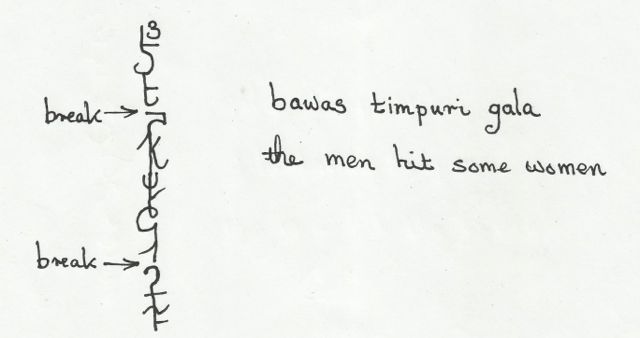 break
bawas timpuri gala
the men hit some women
break